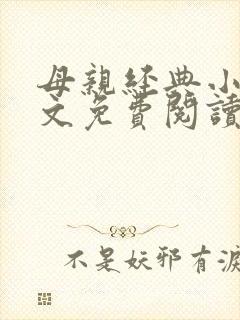 母親經典小
文免費閱讀
不是妖邪有淚